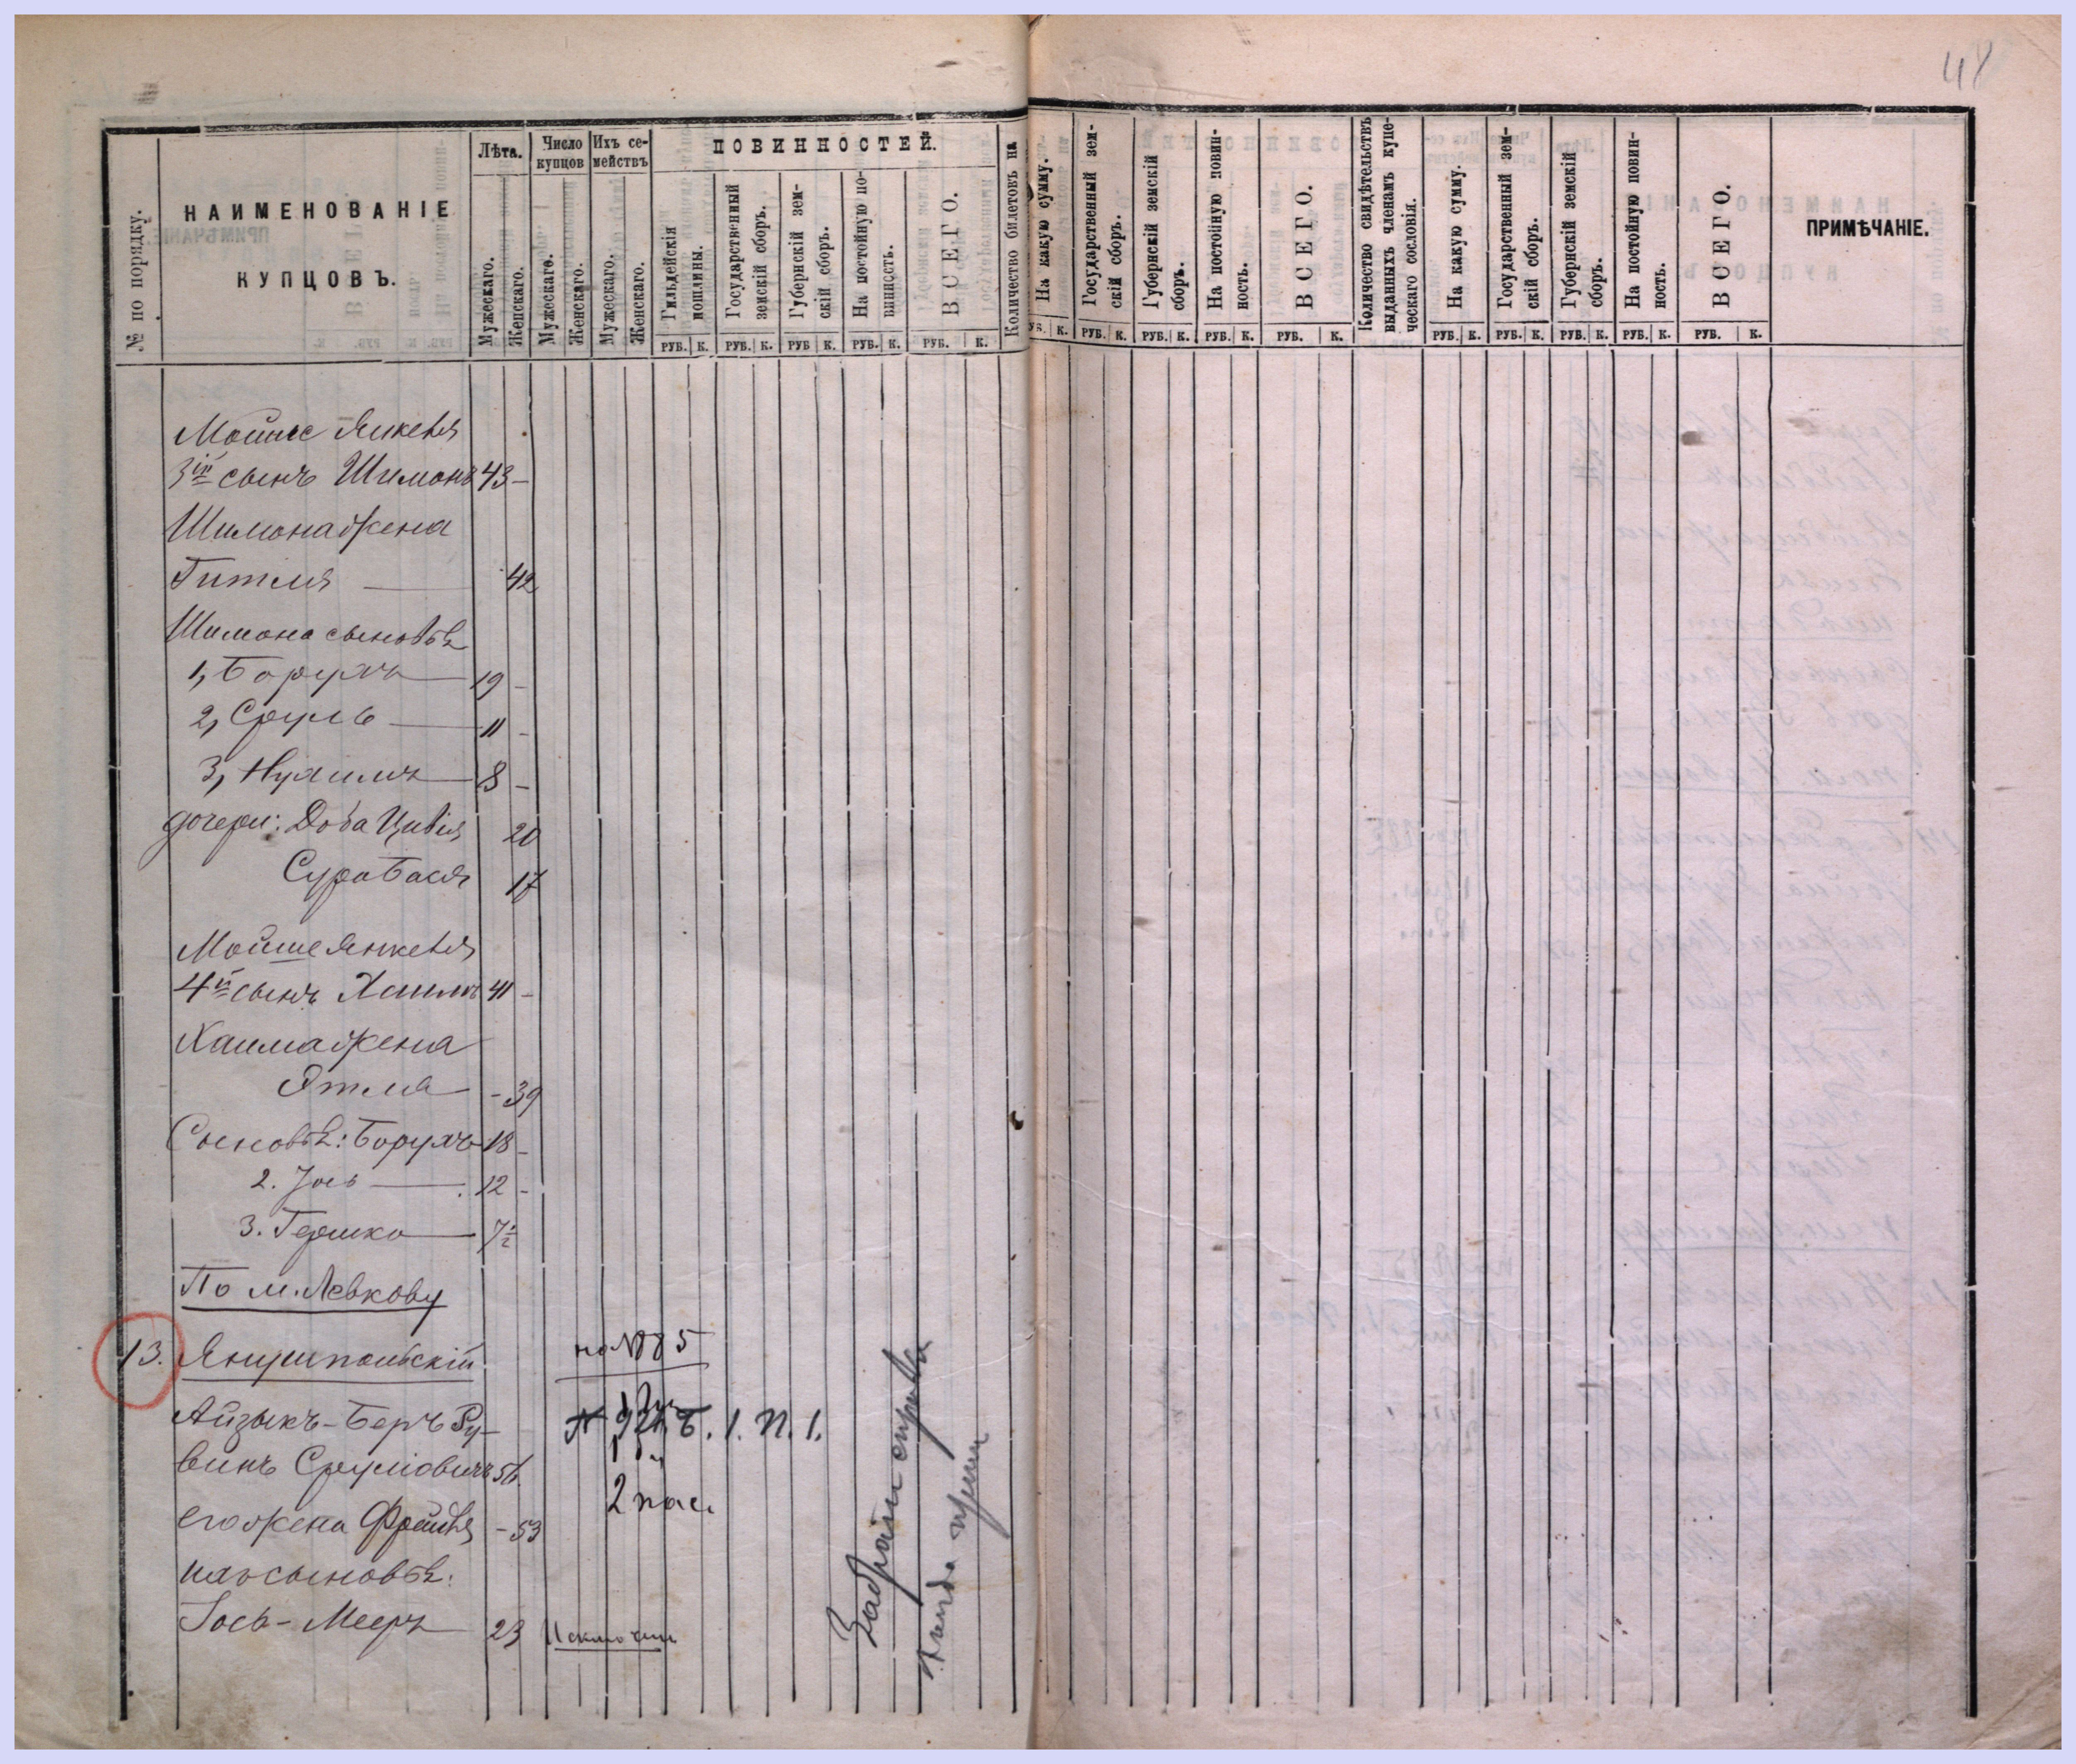 41
№ по порядку.
НАИМЕНОВАНІЕ
КУПЦОВЪ.
Лѣта.
Мужескаго.
Женскаго.
Число купцовъ
Мужескаго.
Женскаго.
Ихъ семействъ
Мужескаго.
Женскаго.
ПОВИННОСТЕЙ.
Гильдейскія пошлины.
Государственный земскій сборъ.
Губернскій земскій сборъ.
На постойную повинность.
ВСЕГО.
Количество билетовъ на
На какую сумму.
Государственный земскій сборъ.
Губернскій земскій сборъ.
На постойную повинность.
ВСЕГО.
Количество свидѣтельствъ выданныхъ членамъ купеческаго сословія.
На какую сумму.
Государственный земскій сборъ.
Губернскій земскій сборъ.
На постойную повинность.
ВСЕГО.
ПРИМѢЧАНІЕ.
РУБ. К. РУБ. К. РУБ К. РУБ. К. РУБ. К. РУБ. К. РУБ. К. РУБ. К. РУБ. К. РУБ. К. РУБ. К. РУБ. К. РУБ. К. РУБ. К. РУБ. К.
Мойше Янкеля
3ій сынъ Шимонъ 43 -
Шимона жена
Гителя — 42
Шимона сыновѣ
1, Борухъ — 19 -
2, Сруль — 11 -
3, Нухимъ — 8 -
дочери: Доба Цивія 20
Сура Бася 17
Мойше Янкеля
4й сынъ Хаимъ 41 -
Хаима жена
Этля - 39
Сыновѣ: Борухъ 18 -
2. Іось — 12 -
3. Гершко — 7½
По м. Левкову
13. Янушпольскій
на 1885
Айзыкъ-Беръ Ру-
Б. 1. П. 1.
винъ Сруліовичъ 56
егожена Фрейдя - 53
2 пас.
ихъ сыновѣ:
Іось-Мееръ 23 Исключен